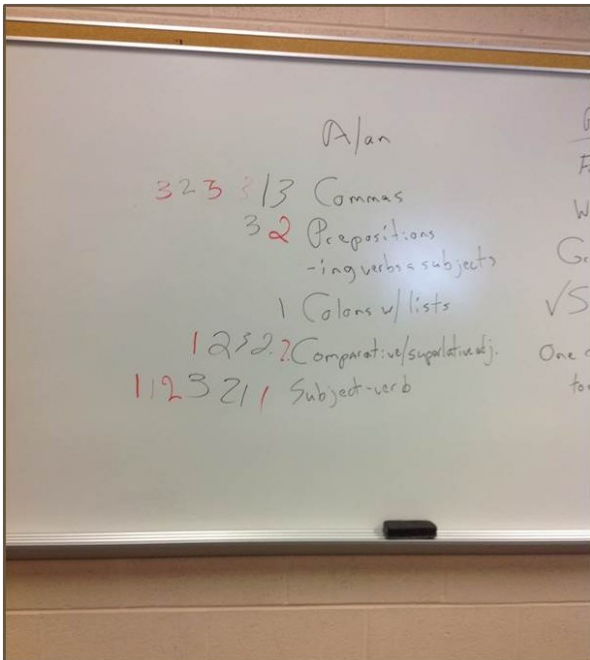 A/an
3 2 3 3 1 3 Commas
3 2 Prepositions
-ing verbs as subjects
1 Colons w/ lists
1 2 3 2. 2. Comparative/superlative adj.
1 1 2 3 2 1 1 Subject-verb
F
W
G
√S
One
to